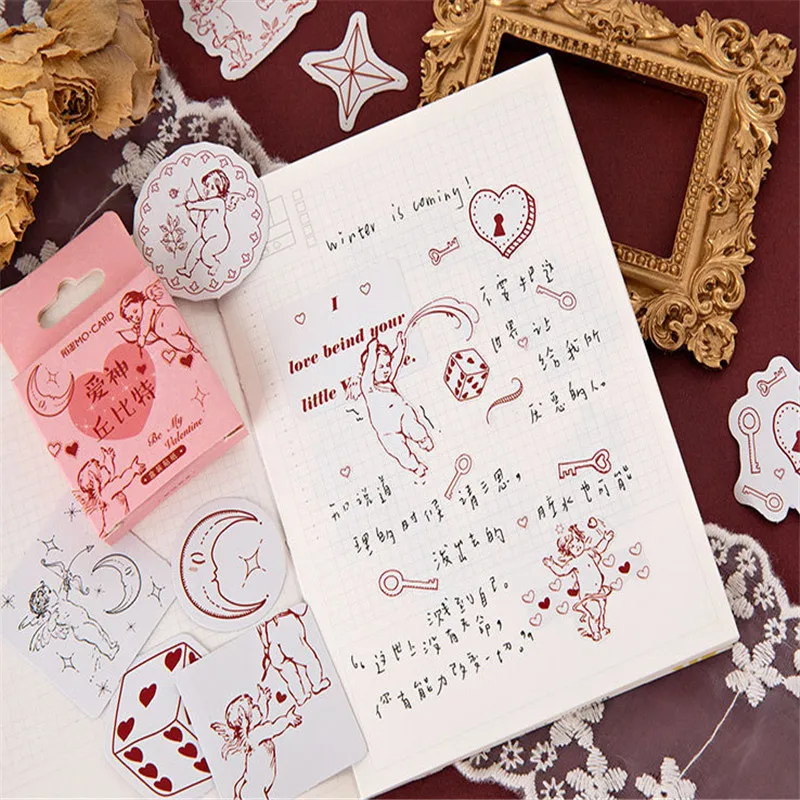 winter is coming!
不要把这
世界让
给我所
厌恶的人。
I
love beind your
little
和说道
理的时候请三思,
泼出去的脏水也可能
溅到自己。
“这世上没有天命,
你有能力改变一切。”
MO·CARD
爱神
丘比特
Be My
Valentine